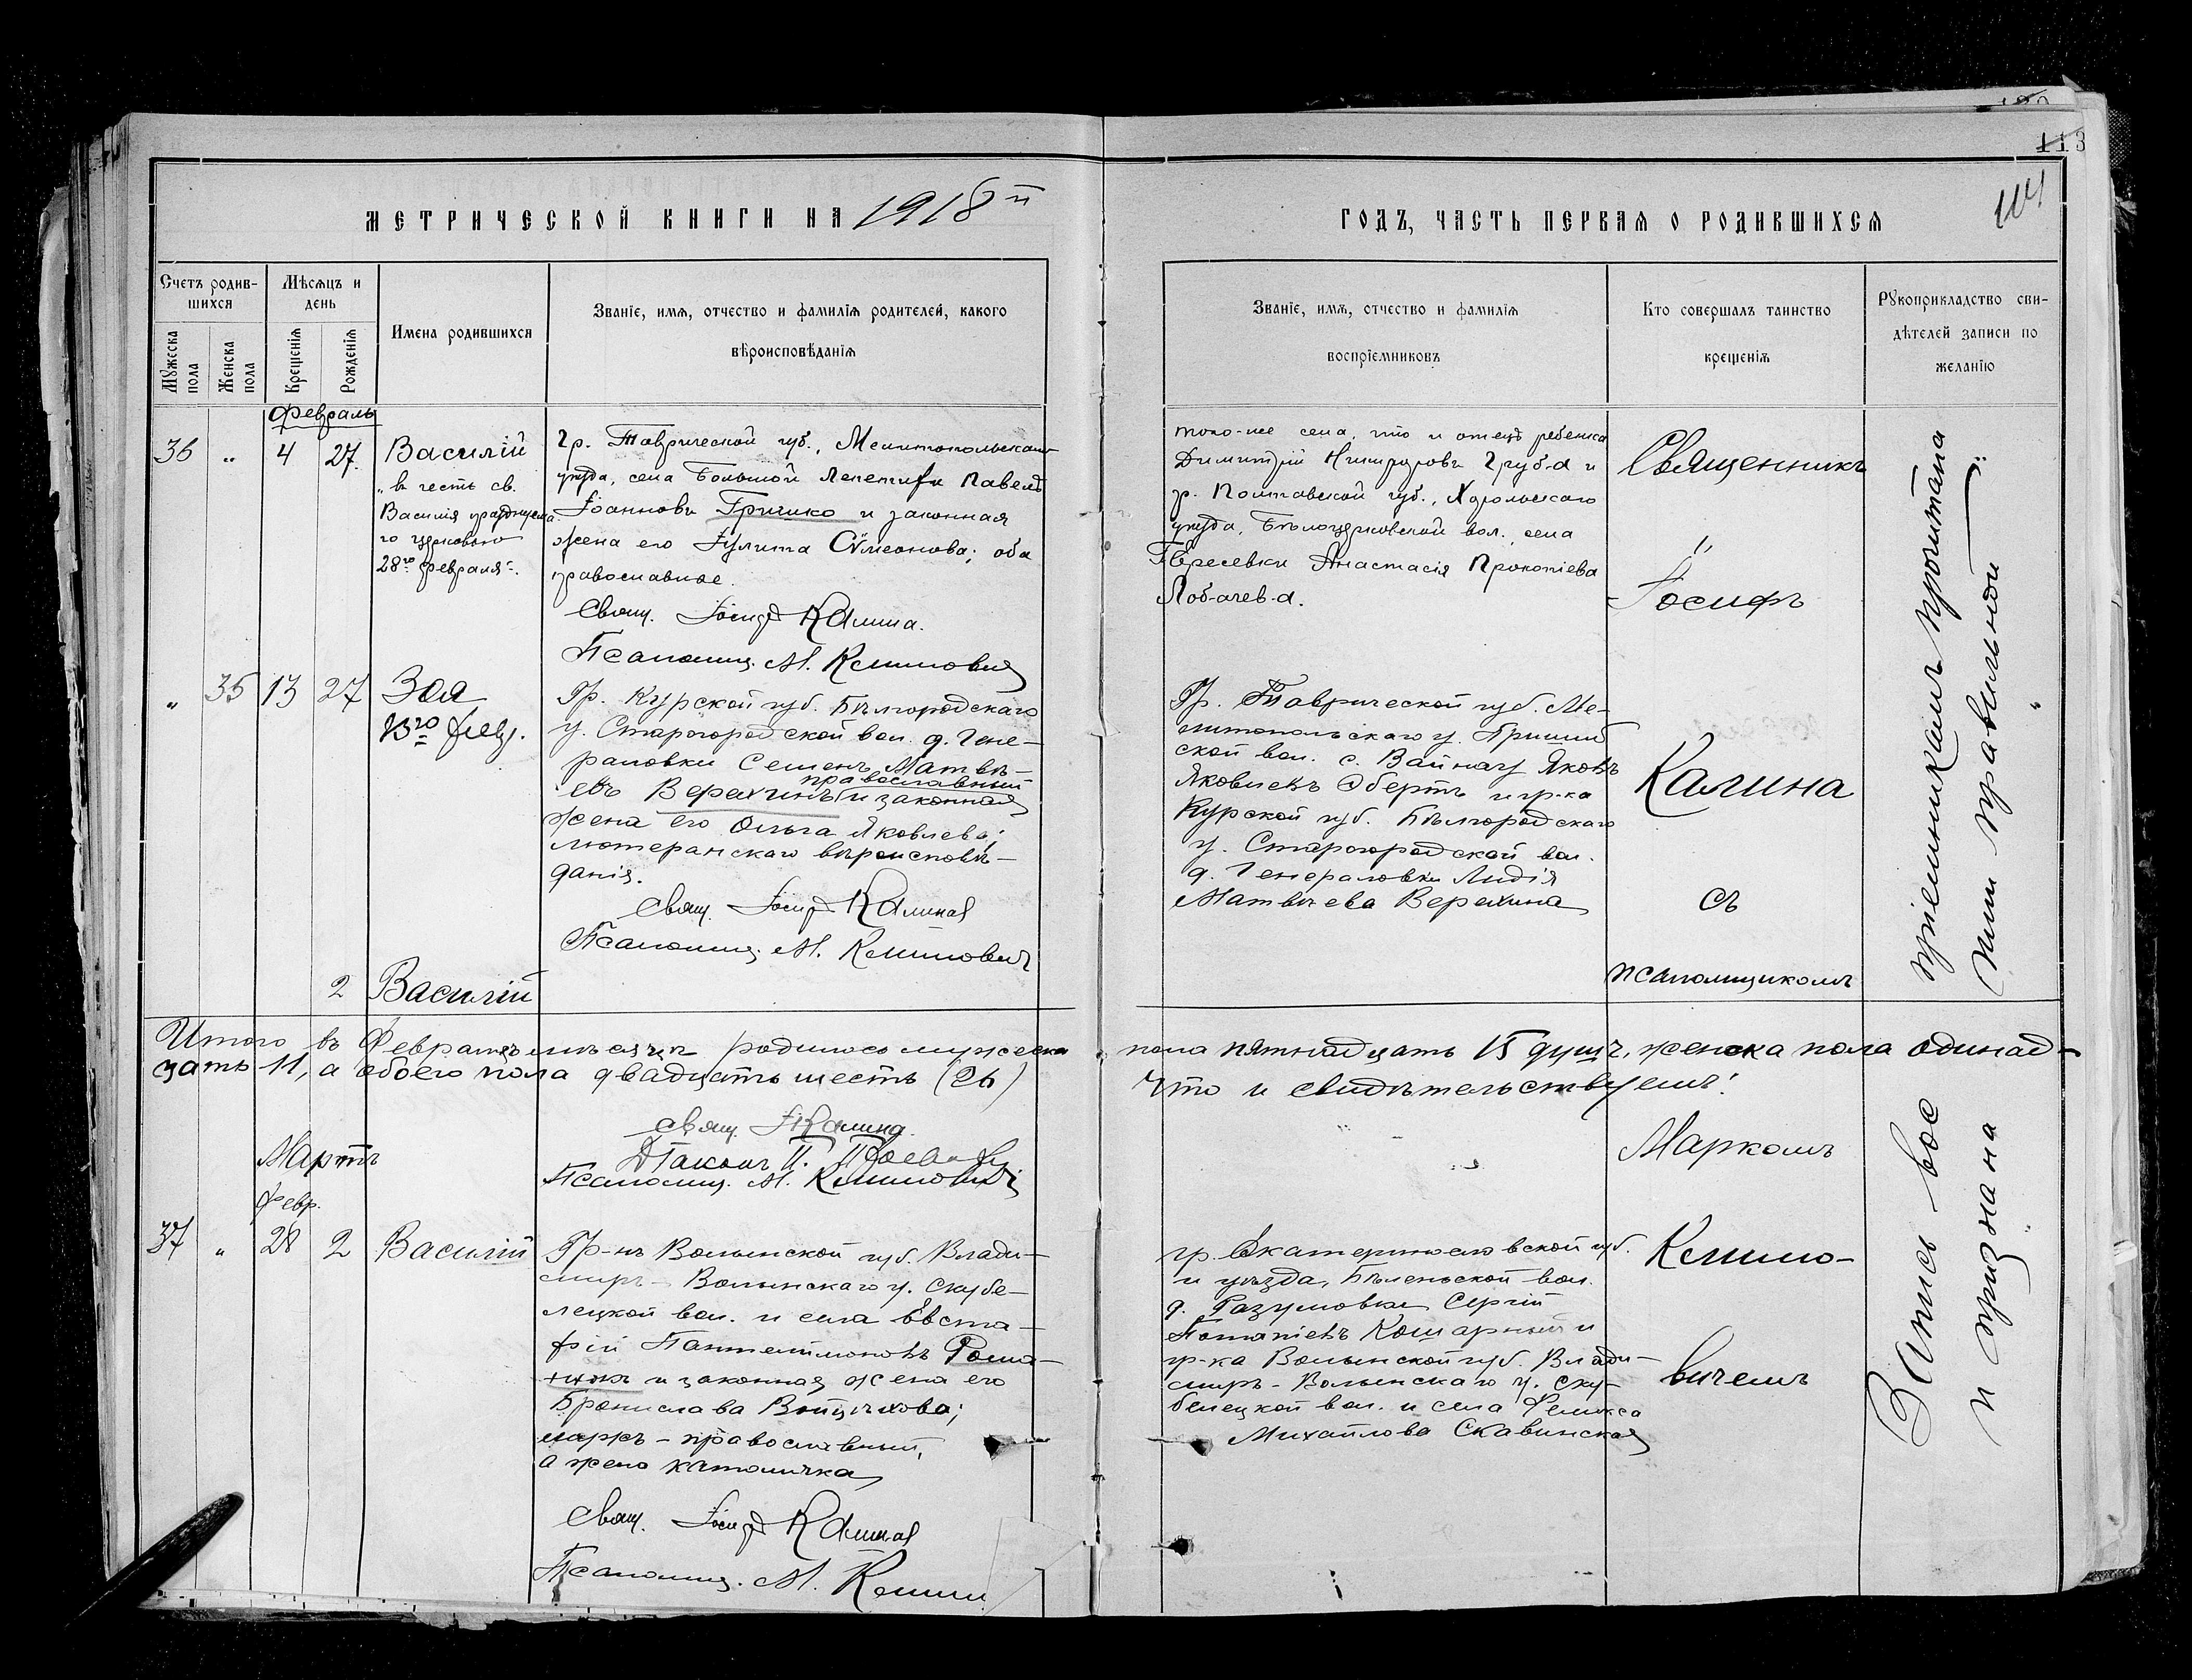 113
104
МЕТРИЧЕСКОЙ КНИГИ НА 1918й
ГОДЪ, ЧАСТЬ ПЕРВАЯ О РОДИВШИХСЯ
Счетъ родив-
шихся
Мѣсяцъ и
день
Мужеска
пола
Женска
пола
Крещенія
Рожденія
Имена родившихся
Званіе, имя, отчество и фамилія родителей, какого
вѣроисповѣданія
Званіе, имя, отчество и фамилія
воспріемниковъ
Кто совершалъ таинство
крещенія
Рукоприкладство сви-
дѣтелей записи по
желанію
Февраль
36 „ 4 27.
Василій
„въ честь св.
Василія празднуема
го церковою
28го февраля".
Гр. Таврической губ., Мелитопольскаго
уѣзда, села Большой Лепетихи Павелъ
Іоанновъ Гришко и законная
жена его Іулита Сѵмеонова; оба
православные.
Свящ. Іосифъ Калина.
Псаломщ. М. Климовичъ
того-же села, что и отецъ ребенка
Димитрій Никифоровъ Груб-а и
гр. Полтавской губ., Хорольскаго
уѣзда, Бѣлоцерковской вол., села
Анастасія Прокопіева
Лобачев-а.
Священникъ
Іосифъ
„ 35 13 27
Зоя
13го февр.
Гр. Курской губ. Бѣлгородскаго
у. Старогородской вол. д. Гене-
раловки Семенъ Матвѣ-
православный
евъ Верехинъ и законная
жена его Ольга Яковлева;
лютеранскаго вѣроисповѣ-
данія.
Свящ. Іосифъ Калина
Псаломщ. М. Климовичъ
Гр. Таврической губ. Ме-
литопольскаго у. Пришиб
ской вол. с. Вайнау Яковъ
Яковлевъ Эбертъ и гр-ка
Курской губ. Бѣлгородскаго
у. Старогородской вол.
д. Генераловки Лидія
Матвѣева Верехина
Калина
съ
псаломщикомъ
2 Василій
Итого въ Февралѣ мѣсяцѣ родилось мужеска пола пятнадцать 15 душъ, женска пола одинад-
цать 11, а обоего пола двадцать шесть (26) Что и свидѣтельствуемъ:
свящ. І Калина
Діаконъ
Псаломщ. М. Климовичъ
Мартъ
Февр.
37 „ 28 2
Василій
Гр-нъ Волынской губ. Влади-
миръ-Волынскаго у. Скубе-
лецкой вол. и села Евста-
фій Пантелимоновъ Рома-
нюкъ и законная жена его
Бронислава Войцѣхова;
мужъ-православный,
а жена католичка
Свящ. Іосифъ Калина
Псаломщ. М. Клим
гр. Екатеринославской губ.
и уѣзда, Бѣленьской вол.
д. Разумовки Сергій
Потапіевъ Кошарный и
гр-ка Волынской губ. Влади-
миръ-Волынскаго у. Ску-
белецкой вол. и села Феликса
Михайлова Скавинская
Маркомъ
Климо-
вичемъ
Запись вос
пріемникамъ прочитана
и признана
ими правильной